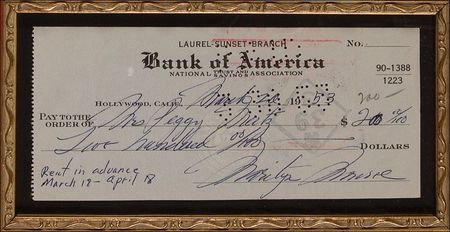 LAUREL-SUNSET-BRANCH No.
Bank of America
NATIONAL TRUST AND SAVINGS ASSOCIATION
90-1388
1223
HOLLYWOOD, CALIF., March 1953
200
PAY TO THE
ORDER OF Mrs Peggy $ 200 00/100
Two hundred 00/100 DOLLARS
Rent in advance
March 18 - April 18
Marilyn Monroe